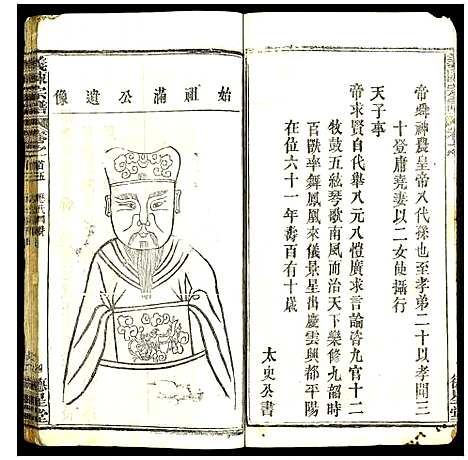 帝舜神農皇帝八代孫也至孝弟二十以孝聞三
十登庸堯妻以二女使攝行
天子事
帝求賢自代舉八元八愷廣求言論咨九官十二
牧鼓五絃琴歌南風而治天下樂修九韶時
百獸率舞鳳凰來儀景星出慶雲興都平陽
在位六十一年壽百有十歲
太史公書
始祖滿公遺像
義陳宗譜
卷首五
德星堂